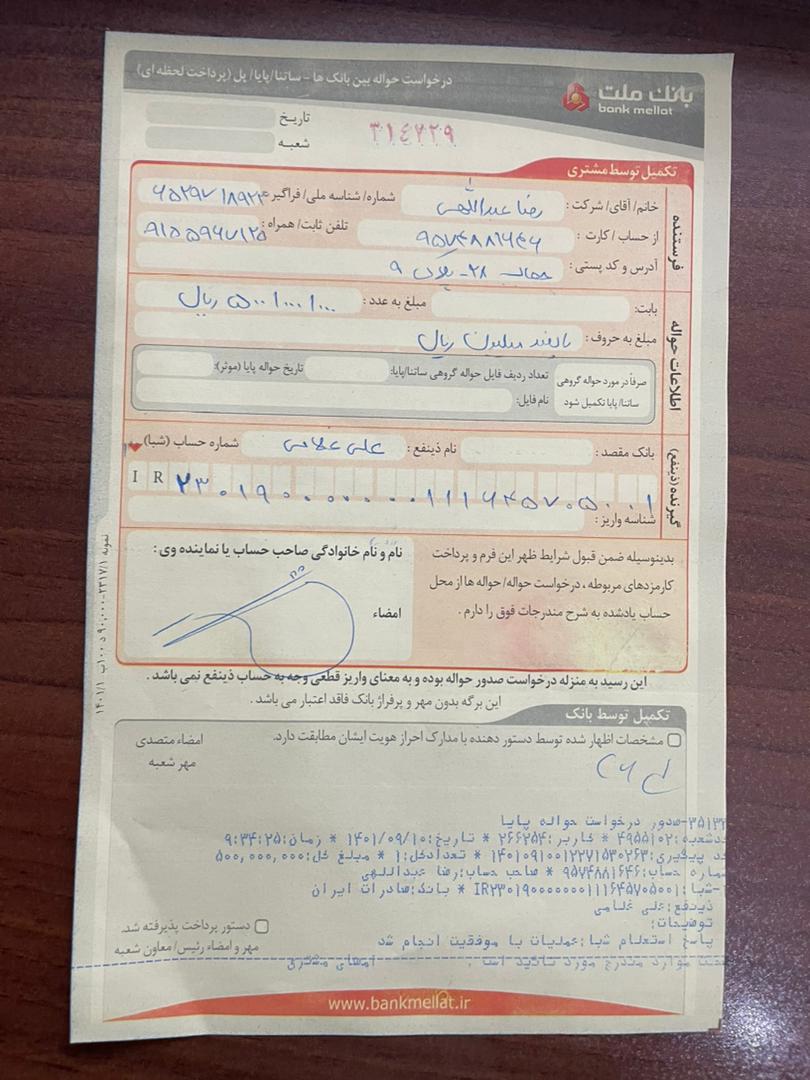 درخواست حواله بین بانک ها - ساتنا/پایا/پل (پرداخت لحظه ای)
بانک ملت
bank mellat
تاریخ
شعبه
۳۱۴۷۲۹
تکمیل توسط مشتری
فرستنده
خانم/آقای/شرکت: رضا عبداللهی شماره/شناسه ملی/فراگیر:
از حساب/کارت: ۹۵۷۴۸۸۱۶۴۶ تلفن ثابت/همراه: ۹۱۵۵۹۶۷۱۲۵
آدرس و کد پستی: ۲۸- پلاک ۹
اطلاعات حواله
بابت: مبلغ به عدد: ۵۰۰/۰۰۰/۰۰۰ ریال
مبلغ به حروف: پانصد میلیون ریال
صرفاً در مورد حواله گروهی ساتنا/پایا تکمیل شود
تعداد ردیف فایل حواله گروهی ساتنا/پایا: تاریخ حواله پایا (موثر):
نام فایل:
گیرنده (ذینفع)
بانک مقصد: نام ذینفع: علی غلامی شماره حساب (شبا):
IR ۲۳۰۱۹۰۰۰۰۰۰۰۰۱۱۱۶۴۵۷۰۵۰۰۱
شناسه واریز:
بدینوسیله ضمن قبول شرایط ظهر این فرم و پرداخت
کارمزدهای مربوطه، درخواست حواله/حواله ها از محل
حساب یادشده به شرح مندرجات فوق را دارم.
نام و نام خانوادگی صاحب حساب یا نماینده وی:
امضاء
این رسید به منزله درخواست صدور حواله بوده و به معنای واریز قطعی وجه به حساب ذینفع نمی باشد.
این برگه بدون مهر و پرفراژ بانک فاقد اعتبار می باشد.
تکمیل توسط بانک
مشخصات اظهار شده توسط دستور دهنده با مدارک احراز هویت ایشان مطابقت دارد.
امضاء متصدی
مهر شعبه
۳۵۱۳۲-صدور درخواست حواله پایا
کدشعبه:۴۹۵۵۱۰۲ * کاربر:۲۶۶۲۵۴ * تاریخ:۱۴۰۱/۰۹/۱۰ * زمان:۹:۳۴:۲۵
کد پیگیری:۱۴۰۱۰۹۱۰۰۱۲۲۷۱۵۳۰۲۶۳ * تعدادکل:۱ * مبلغ کل:۵۰۰,۰۰۰,۰۰۰
شماره حساب:۹۵۷۴۸۸۱۶۴۶ * صاحب حساب:رضا عبداللهی
۱-شبا:IR۲۳۰۱۹۰۰۰۰۰۰۰۰۱۱۱۶۴۵۷۰۵۰۰۱ * بانک:صادرات ایران
ذینفع:علی غلامی
توضیحات:
پاسخ استعلام شبا:عملیات با موفقیت انجام شد
صحت موارد مندرج مورد تائید است. امضای مشتری
دستور پرداخت پذیرفته شد.
مهر و امضاء رئیس/معاون شعبه
www.bankmellat.ir